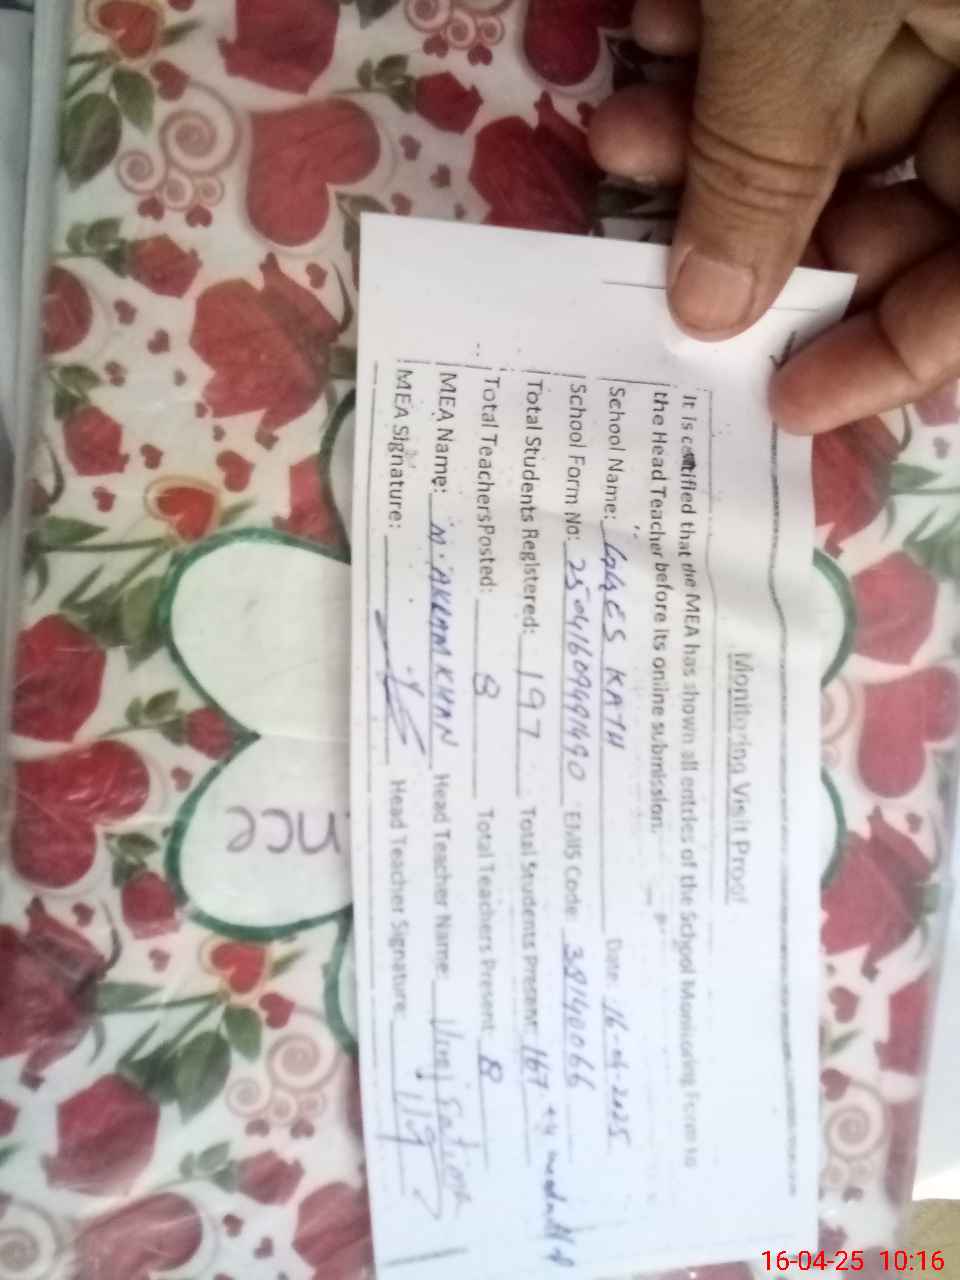 Monitoring Visit Proof
It is certified that the MEA has shown all entries of the School Monitoring Form to
the Head Teacher before its online submission.
School Name: GGES KATH Date: 16-04-2025
School Form No: 25041609449490 EMIS Code 38140066
Total Students Registered: 197 Total Students Present 167
Total TeachersPosted: 8 Total Teachers Present 8
MEA Name: M. AKRAM KHAN Head Teacher Name:
MEA Signature: Head Teacher Signature:
nce
16-04-25 10:16